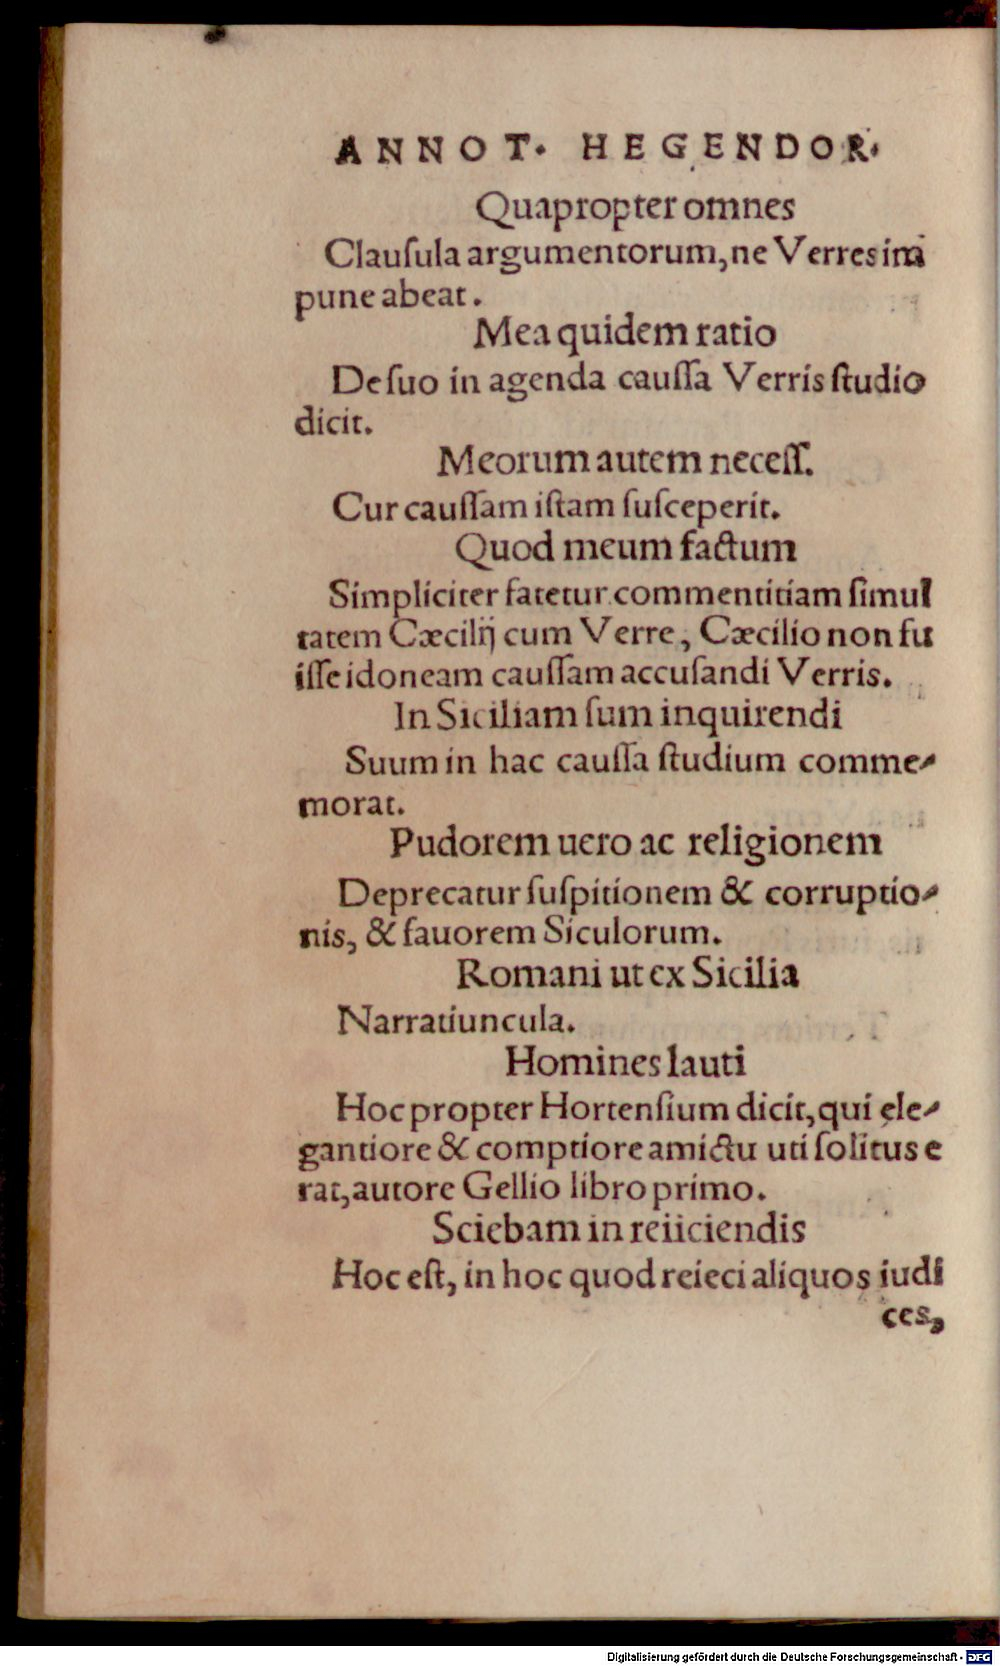 ANNOT. HEGENDOR.
Quapropter omnes
Clauſula argumentorum, ne Verres im
pune abeat.
Mea quidem ratio
De ſuo in agenda cauſſa Verris ſtudio
dicit.
Meorum autem neceſſ.
Cur cauſſam iſtam ſuſceperit.
Quod meum factum
Simpliciter fatetur commentitiam ſimul
tatem Cæcilij cum Verre, Cæcilio non fu
iſſe idoneam cauſſam accuſandi Verris.
In Siciliam ſum inquirendi
Suum in hac cauſſa ſtudium comme-
morat.
Pudorem uero ac religionem
Deprecatur ſuſpitionem & corruptio-
nis, & fauorem Siculorum.
Romani ut ex Sicilia
Narratiuncula.
Homines lauti
Hoc propter Hortenſium dicit, qui ele-
gantiore & comptiore amictu uti ſolitus e
rat, autore Gellio libro primo.
Sciebam in reiiciendis
Hoc eſt, in hoc quod reieci aliquos iudi
ces,
Digitalisierung gefördert durch die Deutsche Forschungsgemeinschaft - DFG